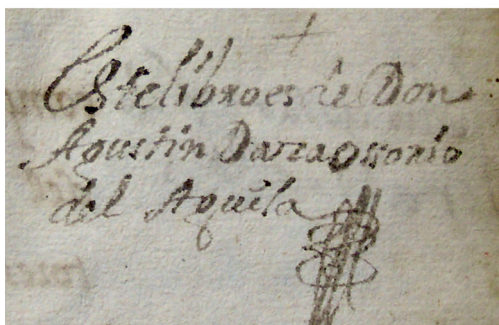 Este libro es de Don
Agustin Daza Ossorio
del Aguila